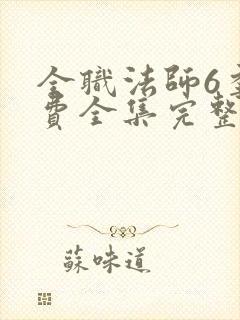 全職法師6
費全集完整
蘇味道